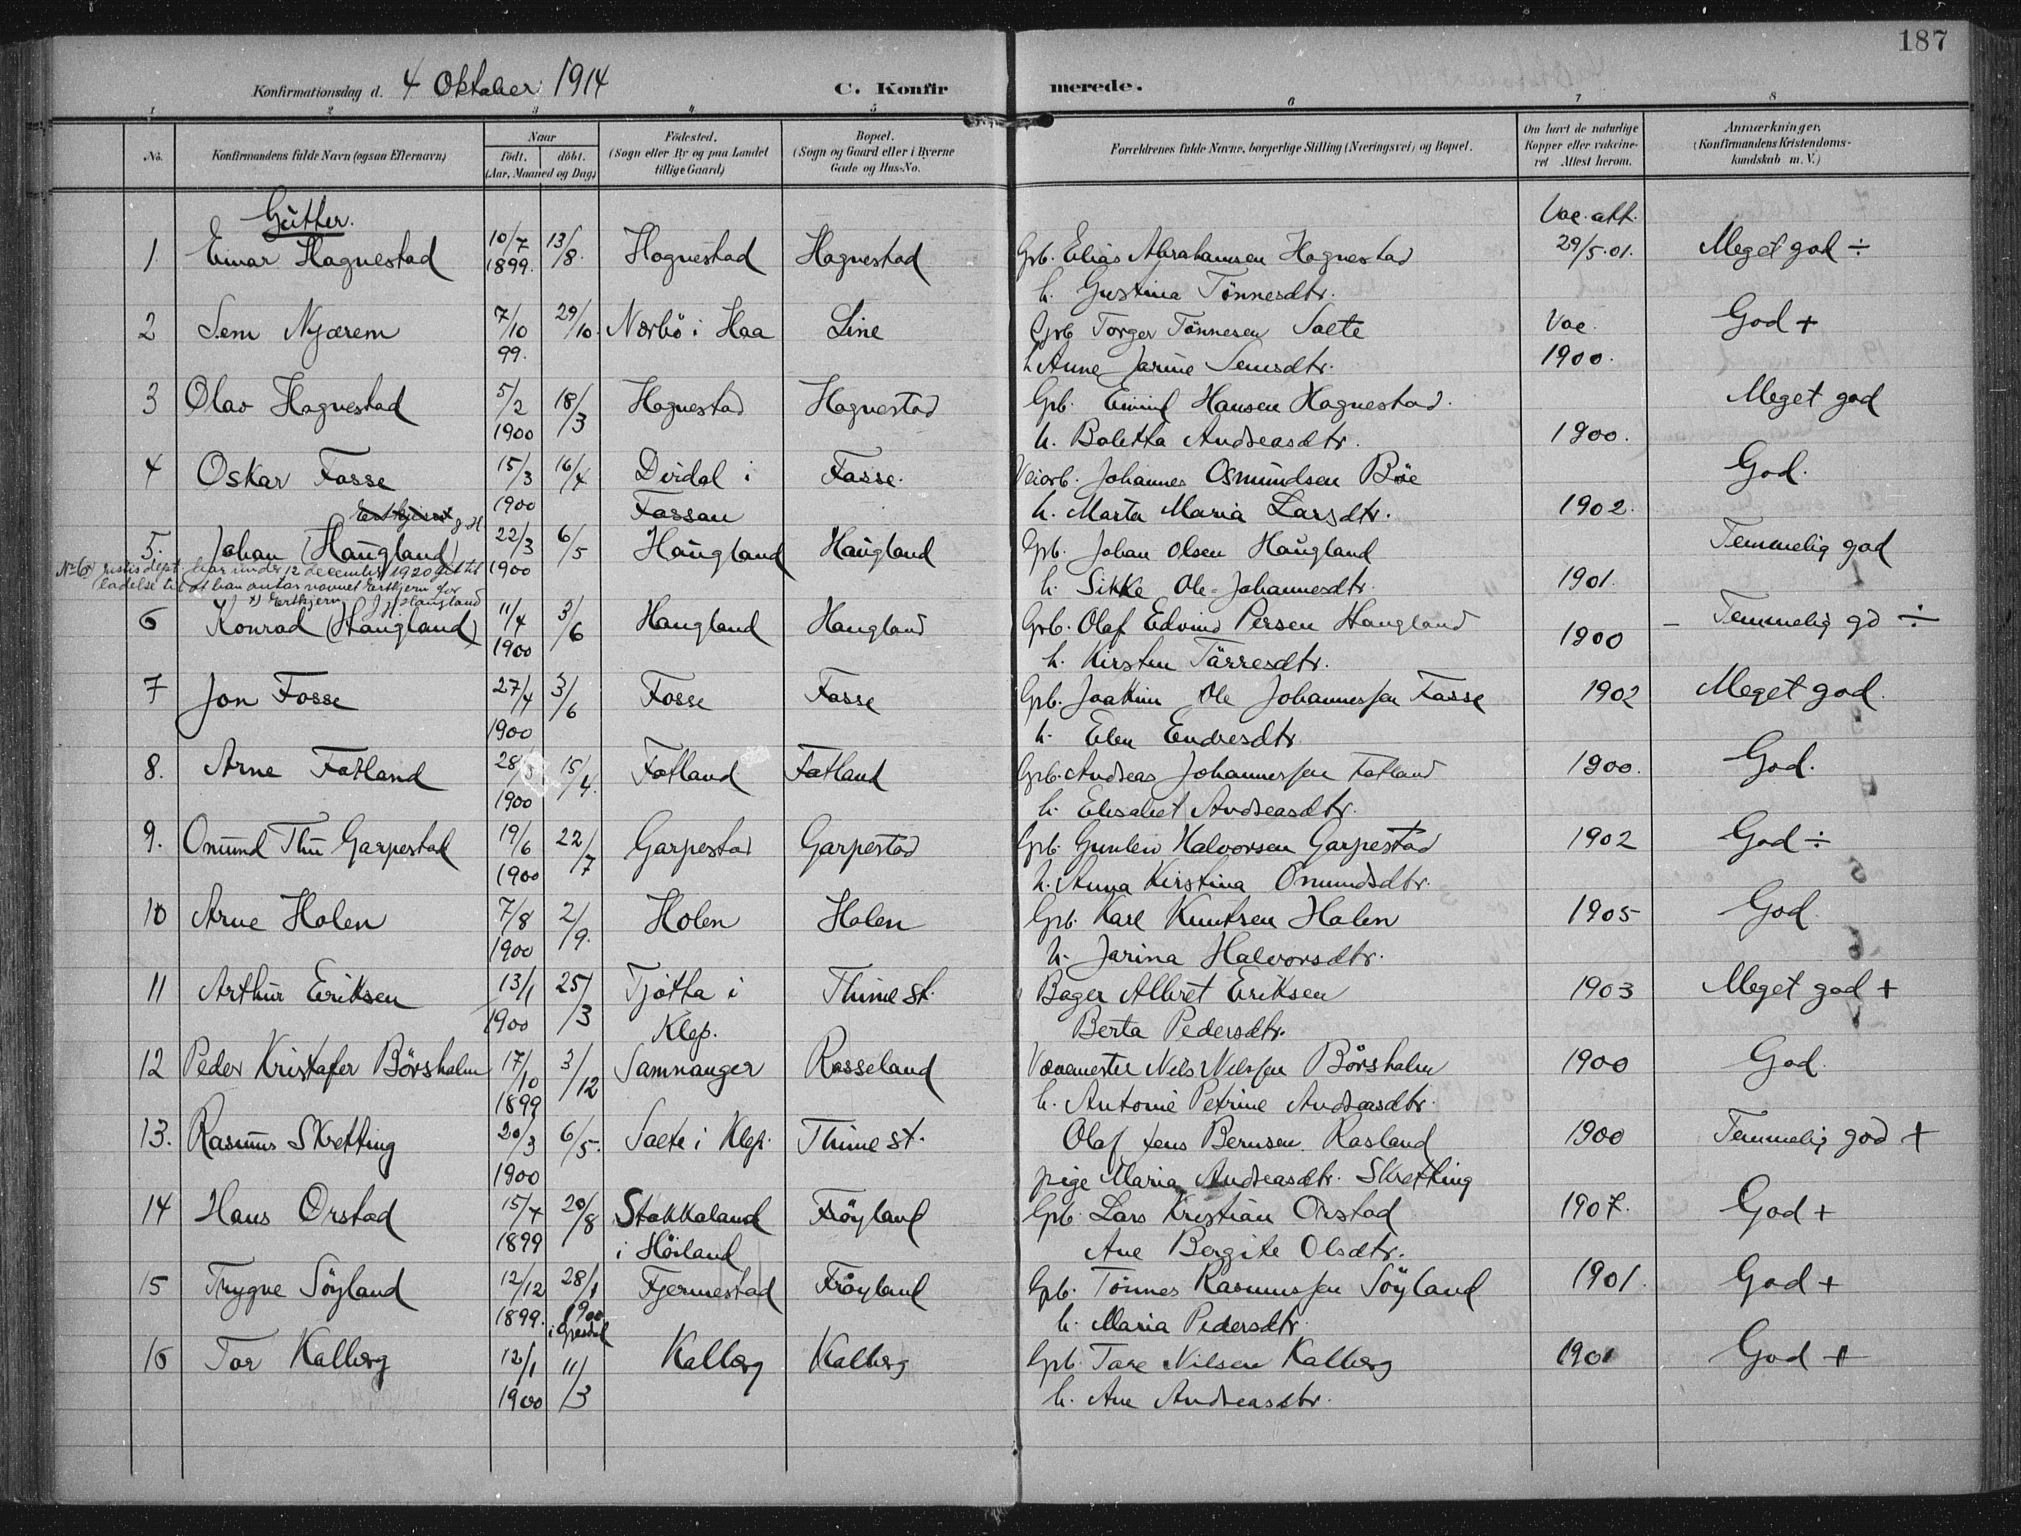 187
Konfirmationsdag d. 4 Oktober 1914 C. Konfirmerede.
1 2 3 4 5 6 7 8
No. Konfirmandens fulde Navn (ogsaa Efternavn) Naar födt. döbt. (Aar, Maaned og Dag) Födested. (Sogn eller By og paa Landet tillige Gaard) Bopæl. (Sogn og Gaard eller i Byerne Gade og Hus-No. Forældrenes fulde Navne, borgerlige Stilling (Næringsvei) og Bopæl. Om havt de naturlige Kopper eller vakcineret Attest herom. Anmærkninger. (Konfirmandens Kristendomskundskab m. V.)
Gütter.
Vac. att.
1. Einar Hognestad 10/7 1899. 13/8. Hognestad Hognestad Gpb. Elias Abrahamsen Hognestad 29/5.01. Meget god ÷
h. Gustina Tönnesdtr.
2 Sem Njærem 7/10 99. 29/10. Nærbö i Haa Line Gpb Torger Tönnesen Saete Vac. 1900. God +
h Anne Jarine Semsdtr.
3 Olav Hognestad 5/2 1900 18/3 Hognestad Hognestad Gpb. Eivind Hansen Hognestad. 1900. Meget god
h. Boletta Andreasdtr.
4 Oskar Fosse 15/3 1900 16/4 Dirdal i Fossan Fosse. Veiarb. Johannes Osmundsen Böe 1902. God.
h. Marta Maria Larsdtr.
5. Johan (Haügland) 22/3 1900 6/5 Haügland Haügland Gpb. Johan Olsen Haügland 1901. Temmelig god
h. Sikke Ole-Johannesdtr.
No 6 x) justisdept. har under 12 december 1920 git til
ladelse til at han antar navnet Ertkjern for
x) Ertkjern J. H. Haugland
6 Konrad (Haugland) 11/4 1900 3/6 Haugland Haugland Gpb. Olaf Edvind Persen Haugland 1900 – Temmelig gd ÷
h. Kirsten Tärresdtr.
7 Jon Fosse 27/4 1900 3/6 Fosse Fosse Gpb. Joakim Ole Johannessen Fosse 1902 Meget god.
h. Elen Endresdtr
8. Arne Fotland 28/3 1900 15/4. Fotland Fotland Gpb. Andreas Johannessen Fotland 1900. God.
h. Elisabet Andreasdtr.
9. Omund Thu Garpestad 19/6 1900 22/7 Garpestad Garpestad Gpb. Gunleiv Halvorsen Garpestad 1902 God ÷
h. Anna Kirstina Omundsdtr.
10 Arne Holen 7/8 1900 2/9. Holen Holen Gpb. Karl Knutsen Holen 1905 God
h. Jarina Halvorsdtr.
11 Arthur Eriksen 13/1 1900 25/3 Tjötta i Klep. Thime st. Bager Albret Eriksen 1903 Meget god +
Berta Pedersdtr.
12 Peder Kristofer Börsholm 17/10 1899 3/12 Samnanger Rosseland Vævemester Nils Nilssen Börsholm 1900 God
h. Antonie Petrine Andreasdtr.
13. Rasmus Skretting 20/3 1900 6/5. Saete i Klep. Thime st. Olaf Jens Bernsen Rosland 1900 Temmelig god +
pige Maria Andreasdtr. Skretting
14 Hans Orstad 15/4 1899 20/8 Stokkaland i Höiland Fröyland Gpb. Lars Kristian Orstad 1907. God +
Ane Bergite Olsdtr.
15 Trygve Söyland 12/12 1899. 28/1 1900 Fjermestad Fröyland Gpb. Tönnes Rasmussen Söyland 1901. God +
h. Maria Pedersdtr.
16 Tor Kalberg 12/1 1900 11/3 Kalberg Kalberg Gpb. Tore Nilsen Kalberg 1901 God +
h. Ane Andreasdtr.